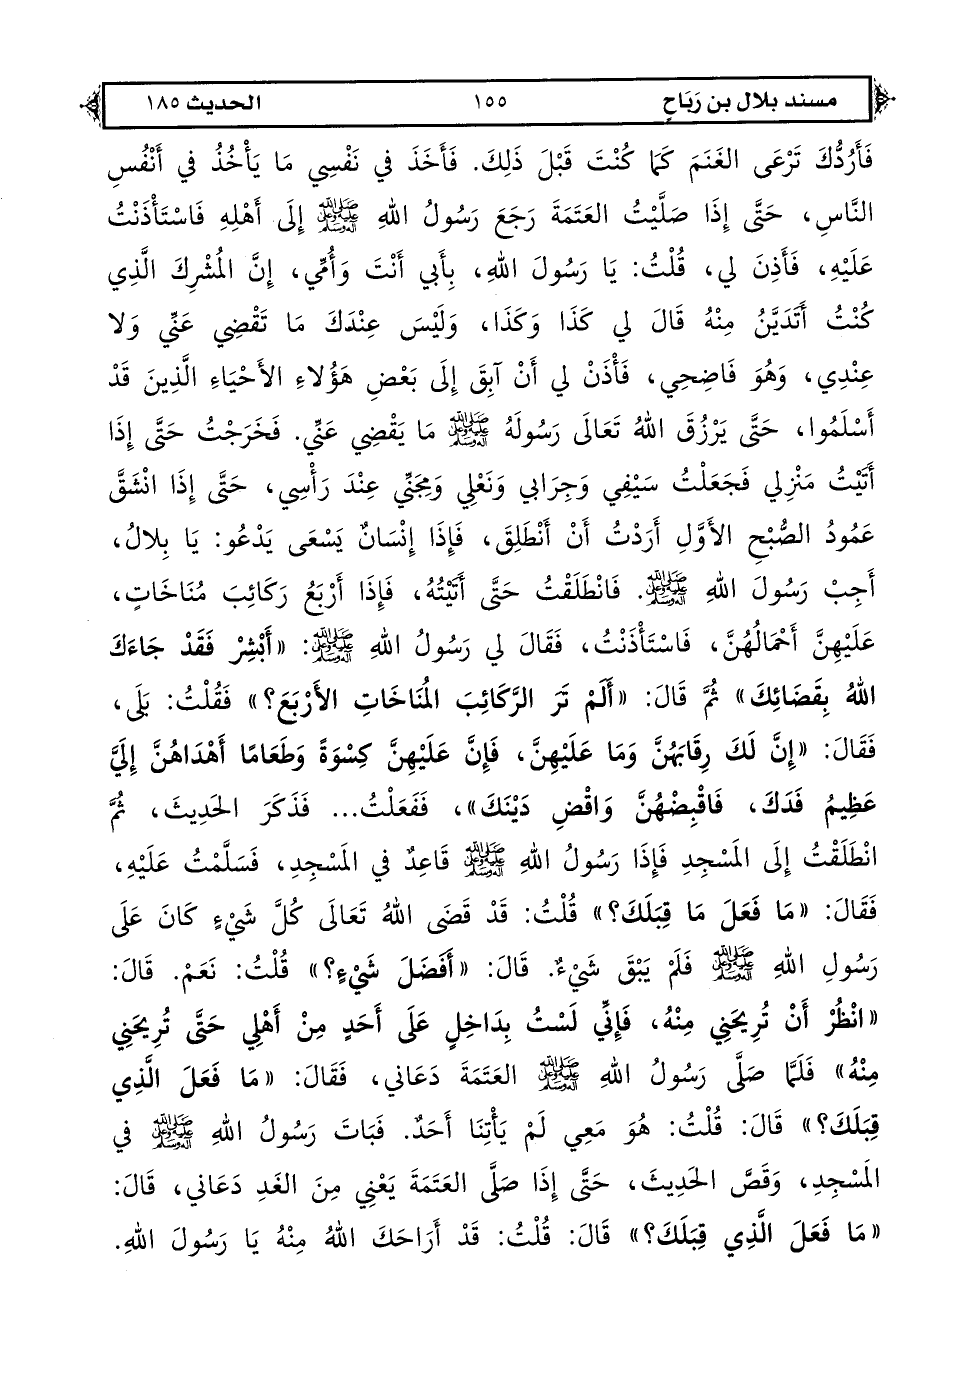 مسند بلال بن رَبَاحٍ ١٥٥ الحديث ١٨٥
فَأَرُدُّكَ تَرْعَى الغَنَمَ كَمَا كُنْتَ قَبْلَ ذَلِكَ. فَأَخَذَ فِي نَفْسِي مَا يَأْخُذُ فِي أَنْفُسِ
النَّاسِ، حَتَّى إِذَا صَلَّيْتُ العَتَمَةَ رَجَعَ رَسُولُ اللهِ ﷺ إِلَى أَهْلِهِ فَاسْتَأْذَنْتُ
عَلَيْهِ، فَأَذِنَ لي، قُلْتُ: يَا رَسُولَ اللهِ، بِأَبي أَنْتَ وَأُمِّي، إِنَّ المُشْرِكَ الَّذِي
كُنْتُ أَتَدَيَّنُ مِنْهُ قَالَ لي كَذَا وَكَذَا، وَلَيْسَ عِنْدَكَ مَا تَقْضِي عَنِّي وَلا
عِنْدِي، وَهُوَ فَاضِحِي، فَأْذَنْ لي أَنْ آبِقَ إِلَى بَعْضِ هَؤُلاءِ الأَحْيَاءِ الَّذِينَ قَدْ
أَسْلَمُوا، حَتَّى يَرْزُقَ اللهُ تَعَالَى رَسُولَهُ ﷺ مَا يَقْضِي عَنِّي. فَخَرَجْتُ حَتَّى إِذَا
أَتَيْتُ مَنْزِلي فَجَعَلْتُ سَيْفِي وَجِرَابي وَنَعْلِي وَمِجَنِّي عِنْدَ رَأْسِي، حَتَّى إِذَا انْشَقَّ
عَمُودُ الصُّبْحِ الأَوَّلِ أَرَدْتُ أَنْ أَنْطَلِقَ، فَإِذَا إِنْسَانٌ يَسْعَى يَدْعُو: يَا بِلالُ،
أَجِبْ رَسُولَ اللهِ ﷺ. فَانْطَلَقْتُ حَتَّى أَتَيْتُهُ، فَإِذَا أَرْبَعُ رَكَائِبَ مُنَاخَاتٍ،
عَلَيْهِنَّ أَحْمَالُهُنَّ، فَاسْتَأْذَنْتُ، فَقَالَ لي رَسُولُ اللهِ ﷺ: «أَبْشِرْ فَقَدْ جَاءَكَ
اللهُ بِقَضَائِكَ» ثُمَّ قَالَ: «أَلَمْ تَرَ الرَّكَائِبَ المُنَاخَاتِ الأَرْبَعَ؟» فَقُلْتُ: بَلَى،
فَقَالَ: «إِنَّ لَكَ رِقَابَهُنَّ وَمَا عَلَيْهِنَّ، فَإِنَّ عَلَيْهِنَّ كِسْوَةً وَطَعَامًا أَهْدَاهُنَّ إِلَيَّ
عَظِيمُ فَدَكَ، فَاقْبِضْهُنَّ وَاقْضِ دَيْنَكَ»، فَفَعَلْتُ... فَذَكَرَ الحَدِيثَ، ثُمَّ
انْطَلَقْتُ إِلَى المَسْجِدِ فَإِذَا رَسُولُ اللهِ ﷺ قَاعِدٌ فِي المَسْجِدِ، فَسَلَّمْتُ عَلَيْهِ،
فَقَالَ: «مَا فَعَلَ مَا قِبَلَكَ؟» قُلْتُ: قَدْ قَضَى اللهُ تَعَالَى كُلَّ شَيْءٍ كَانَ عَلَى
رَسُولِ اللهِ ﷺ فَلَمْ يَبْقَ شَيْءٌ. قَالَ: «أَفَضَلَ شَيْءٍ؟» قُلْتُ: نَعَمْ. قَالَ:
«انْظُرْ أَنْ تُرِيحَنِي مِنْهُ، فَإِنِّي لَسْتُ بِدَاخِلٍ عَلَى أَحَدٍ مِنْ أَهْلِي حَتَّى تُرِيحَنِي
مِنْهُ» فَلَمَّا صَلَّى رَسُولُ اللهِ ﷺ العَتَمَةَ دَعَاني، فَقَالَ: «مَا فَعَلَ الَّذِي
قِبَلَكَ؟» قَالَ: قُلْتُ: هُوَ مَعِي لَمْ يَأْتِنَا أَحَدٌ. فَبَاتَ رَسُولُ اللهِ ﷺ فِي
المَسْجِدِ، وَقَصَّ الحَدِيثَ، حَتَّى إِذَا صَلَّى العَتَمَةَ يَعْنِي مِنَ الغَدِ دَعَاني، قَالَ:
«مَا فَعَلَ الَّذِي قِبَلَكَ؟» قَالَ: قُلْتُ: قَدْ أَرَاحَكَ اللهُ مِنْهُ يَا رَسُولَ اللهِ.